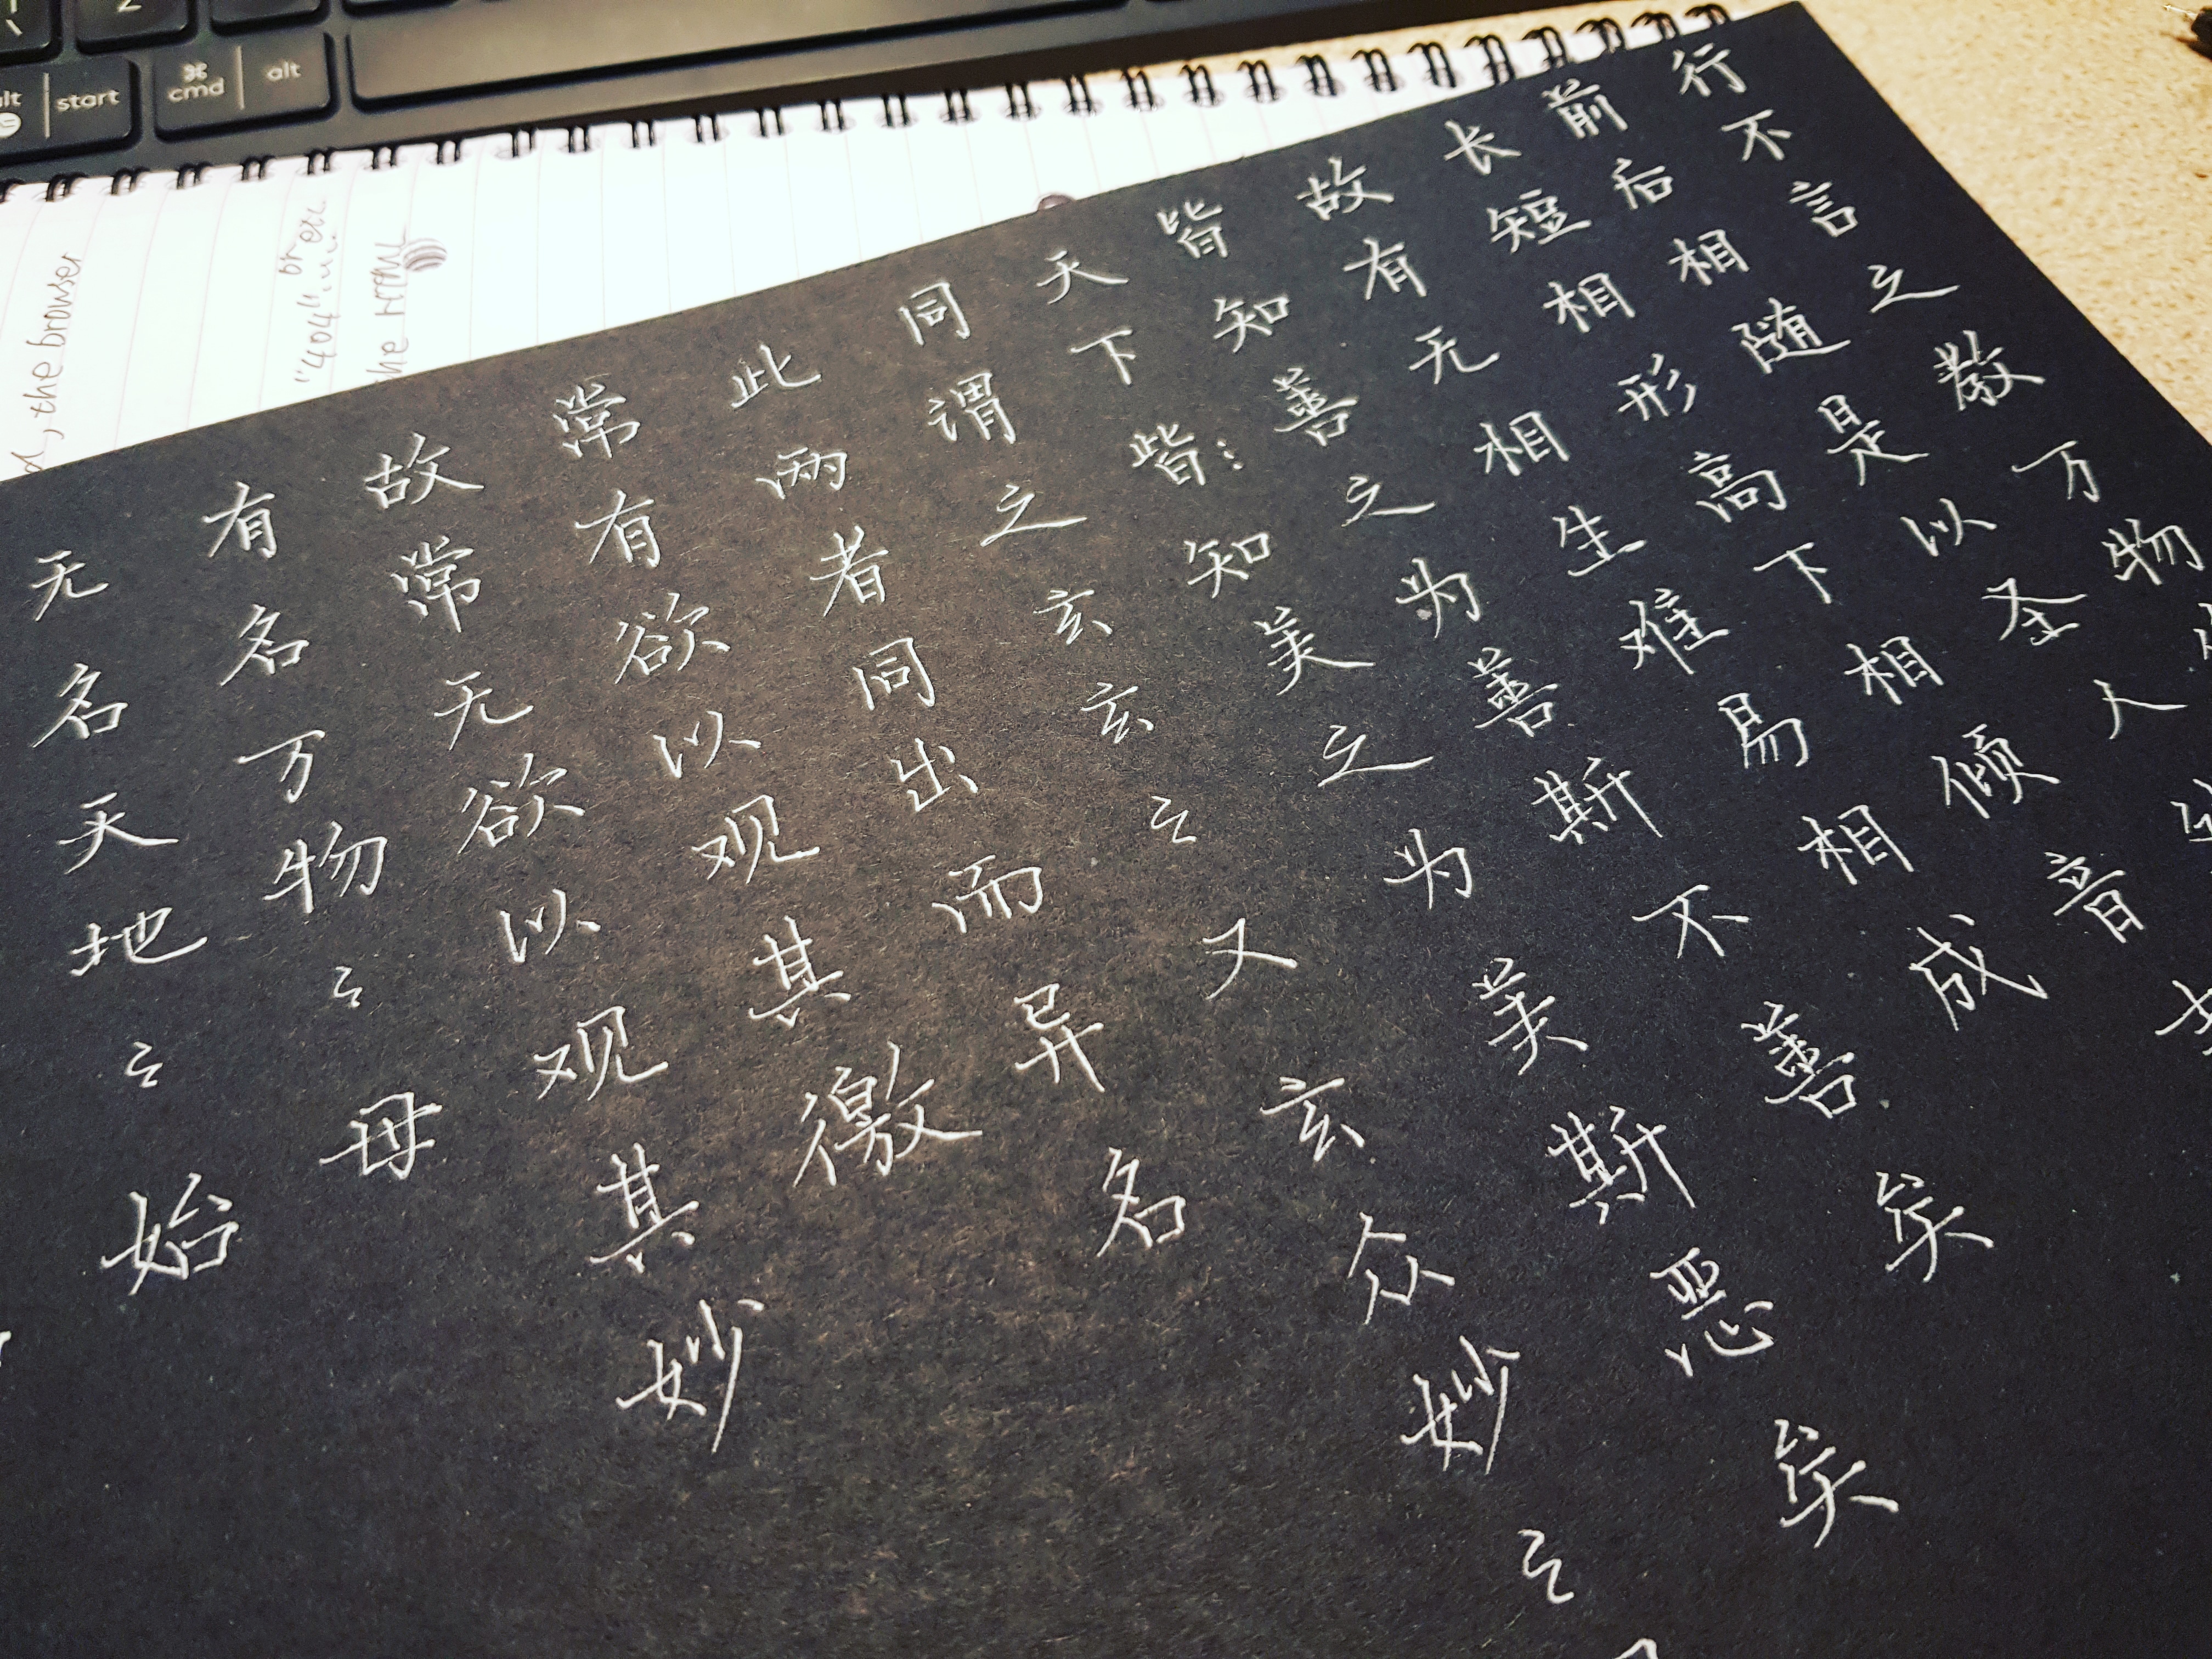 Z
\
start
⌘
cmd
alt
, the browser
"404"
or
the HTML
无名天地之始
有名万物之母
故常无欲以观其妙
常有欲以观其徼
此两者同出而异名
同谓之玄玄之又玄众妙之
天下皆知美之为美斯恶矣
皆知善之为善斯不善矣
故有无相生难易相成
长短相形高下相倾音
前后相随是以圣人
行不言之教万物